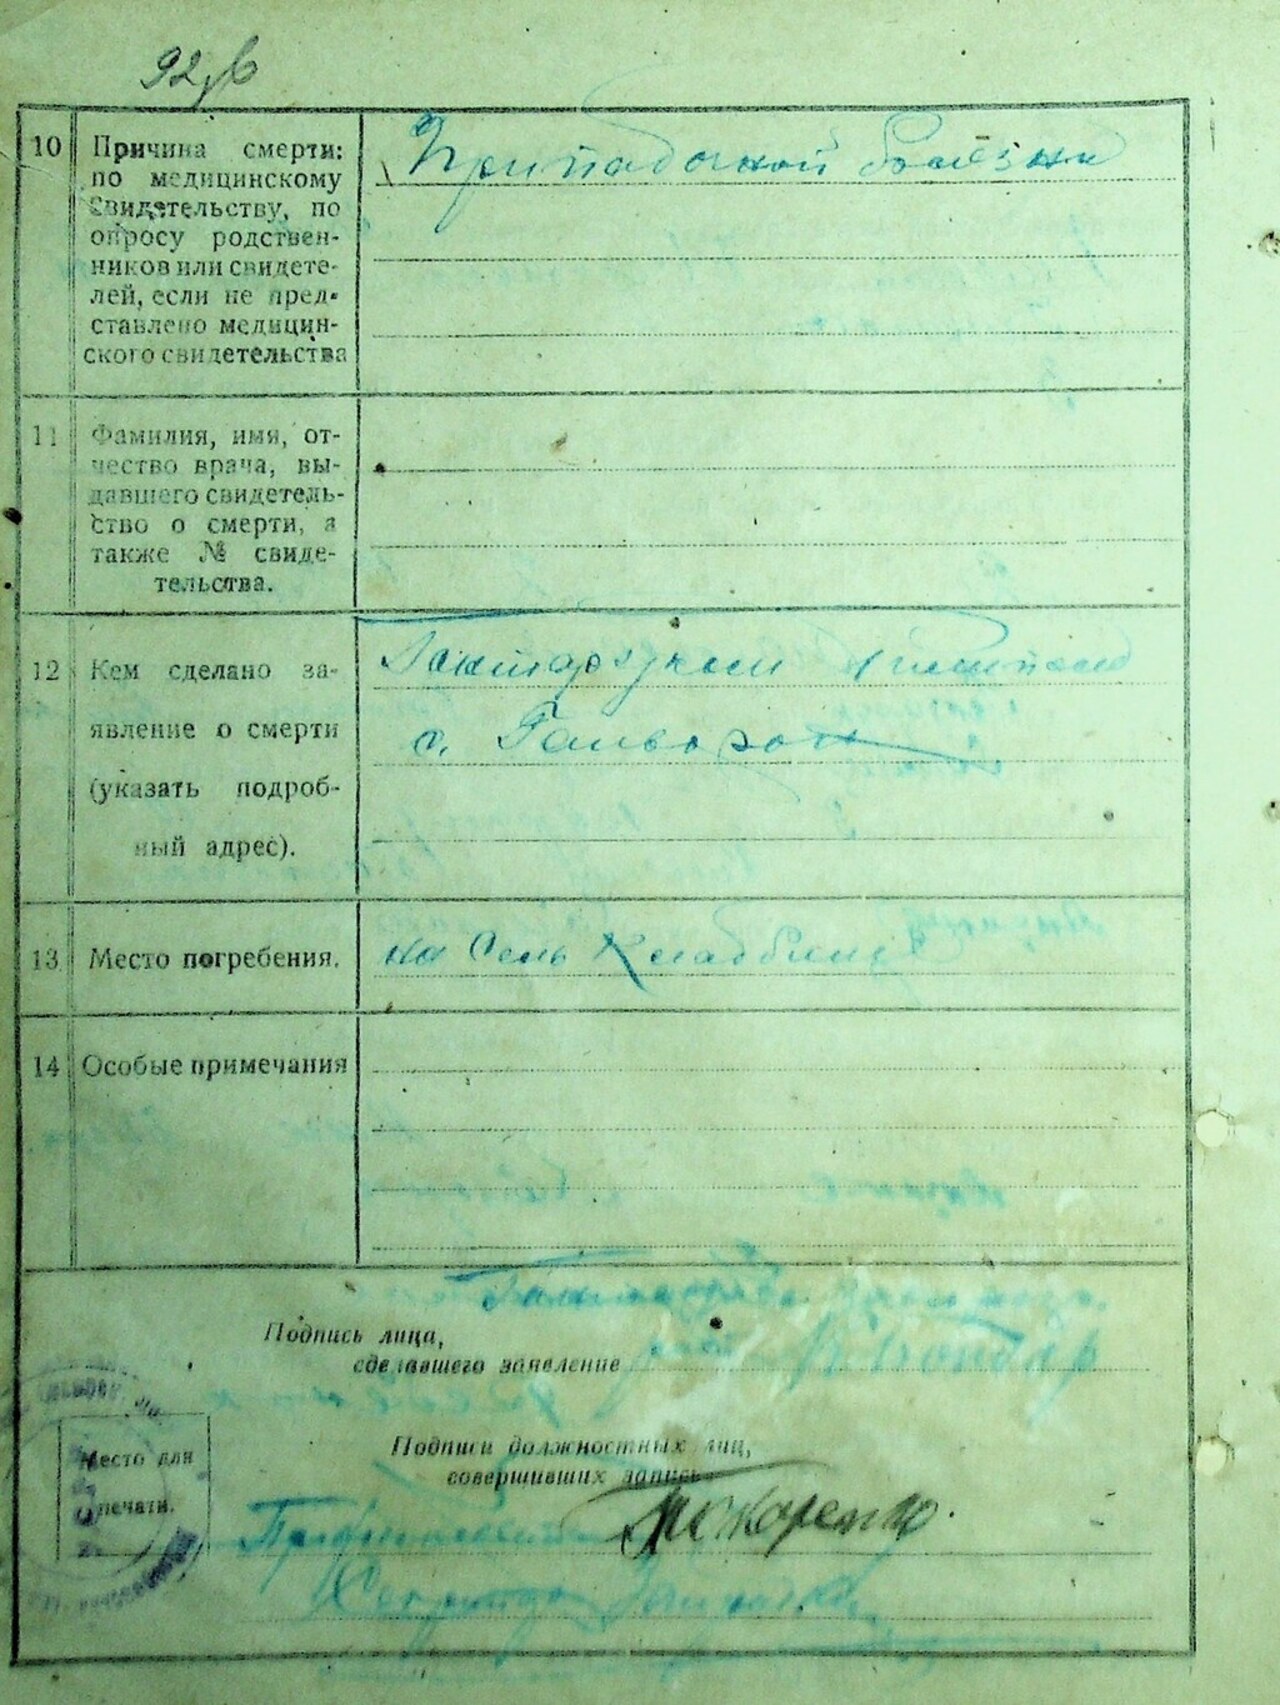 10 Причина смерти: Припадочной болезни
по медицинскому
свидетельству, по
опросу родствен-
ников или свидете-
лей, если не пред-
ставлено медицин-
ского свидетельства
11 Фамилия, имя, от-
чество врача, вы-
давшего свидетель-
ство о смерти, а
также № свиде-
тельства.
12 Кем сделано за-
явление о смерти с.
(указать подроб-
ный адрес).
13 Место погребения. на Сель Кладбище
14 Особые примечания
Подпись лица,
сделавшего заявление
Подписи должностных лиц,
совершивших запись
Место для
печати.
Секретарь